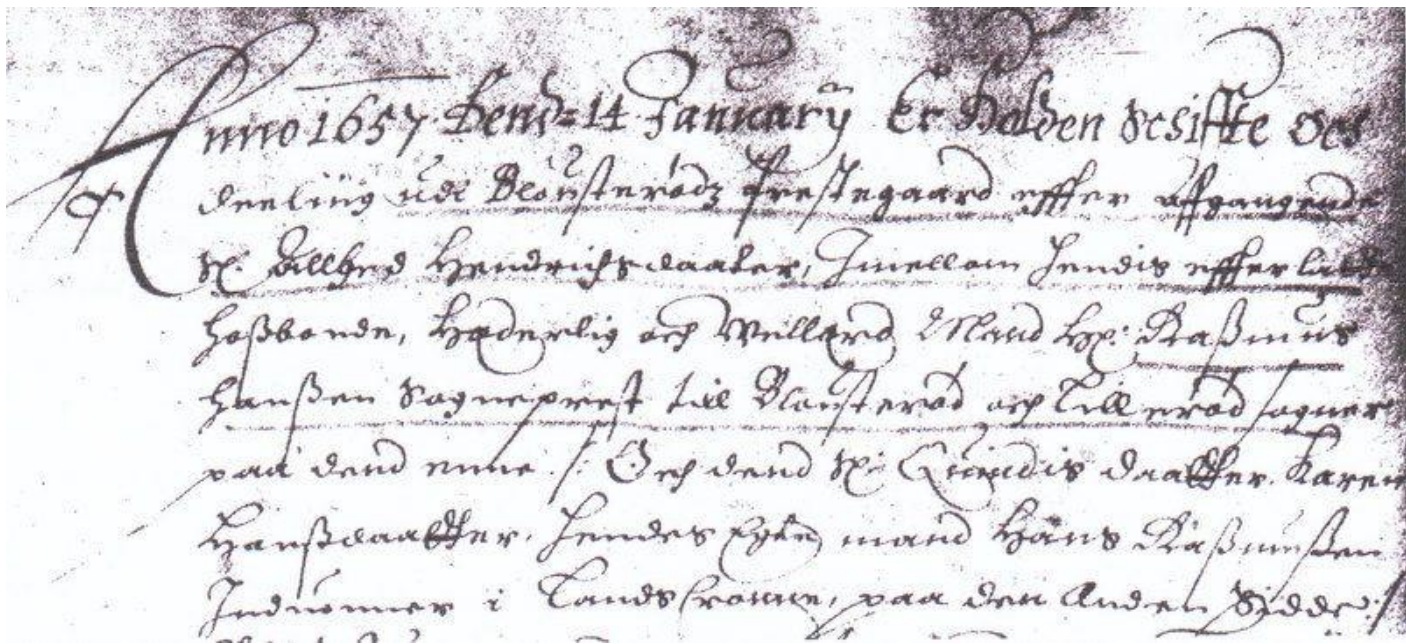 Anno 1657 Dend 14 January Er Holden Schiffte och
deeliing udi Blousterødz Prestegaard effter affgangende
Sl. Hendrichsdaater, Imellom hendis effterlatte
hoßbonde, Hæderlig och Wellerd Mand Hr: Raßmus
Hanßen Sogneprest till Blousterød och Lillerød sogner
paa dend enne /: Och dend Sl: Quindis daatter Karen
Hanßdaatter, hendes Egte mand Hans Raßmußen
Induonner i Landscronne, paa den Anden Sidde:/